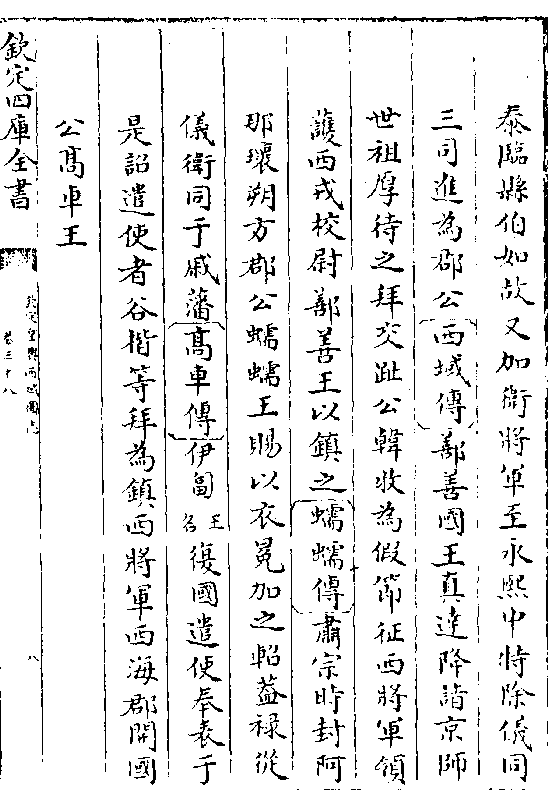 泰臨縣伯如故又加衛將軍至永熙中特除儀同
三司進為郡公西域傳鄯善國王真達降詣京師
世祖厚待之拜交趾公韓牧為假節征西將軍領
護西戎校尉鄯善王以鎮之蠕蠕傳肅宗時封阿
那瓌朔方郡公蠕蠕王賜以衣冕加之軺葢禄從
儀衛同于戚藩髙車傳伊匐王名復國遣使奉表于
是詔遣使者谷楷等拜為鎮西將軍西海郡開國
公髙車王
欽定四庫全書
欽定皇輿西域圖志
卷三十八
八